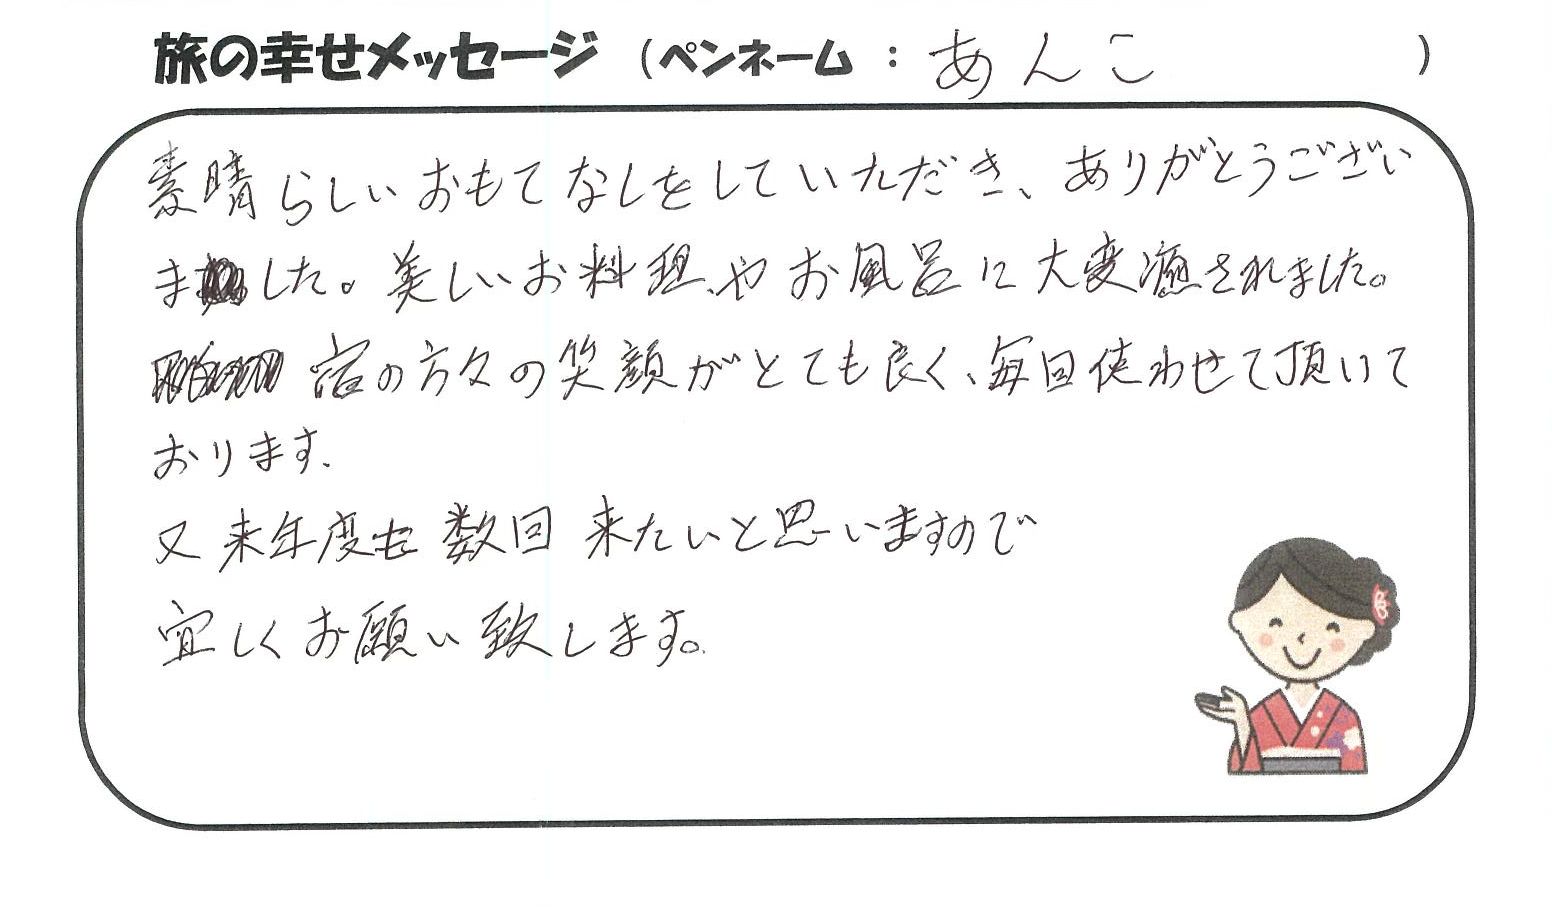 旅の幸せメッセージ (ペンネーム : あんこ )
素晴らしいおもてなしをしていただき、ありがとうござい
ました。美しいお料理やお風呂に大変癒されました。
宿の方々の笑顔がとても良く、毎回使わせて頂いて
おります.
又来年度も数回来たいと思いますので
宜しくお願い致します。